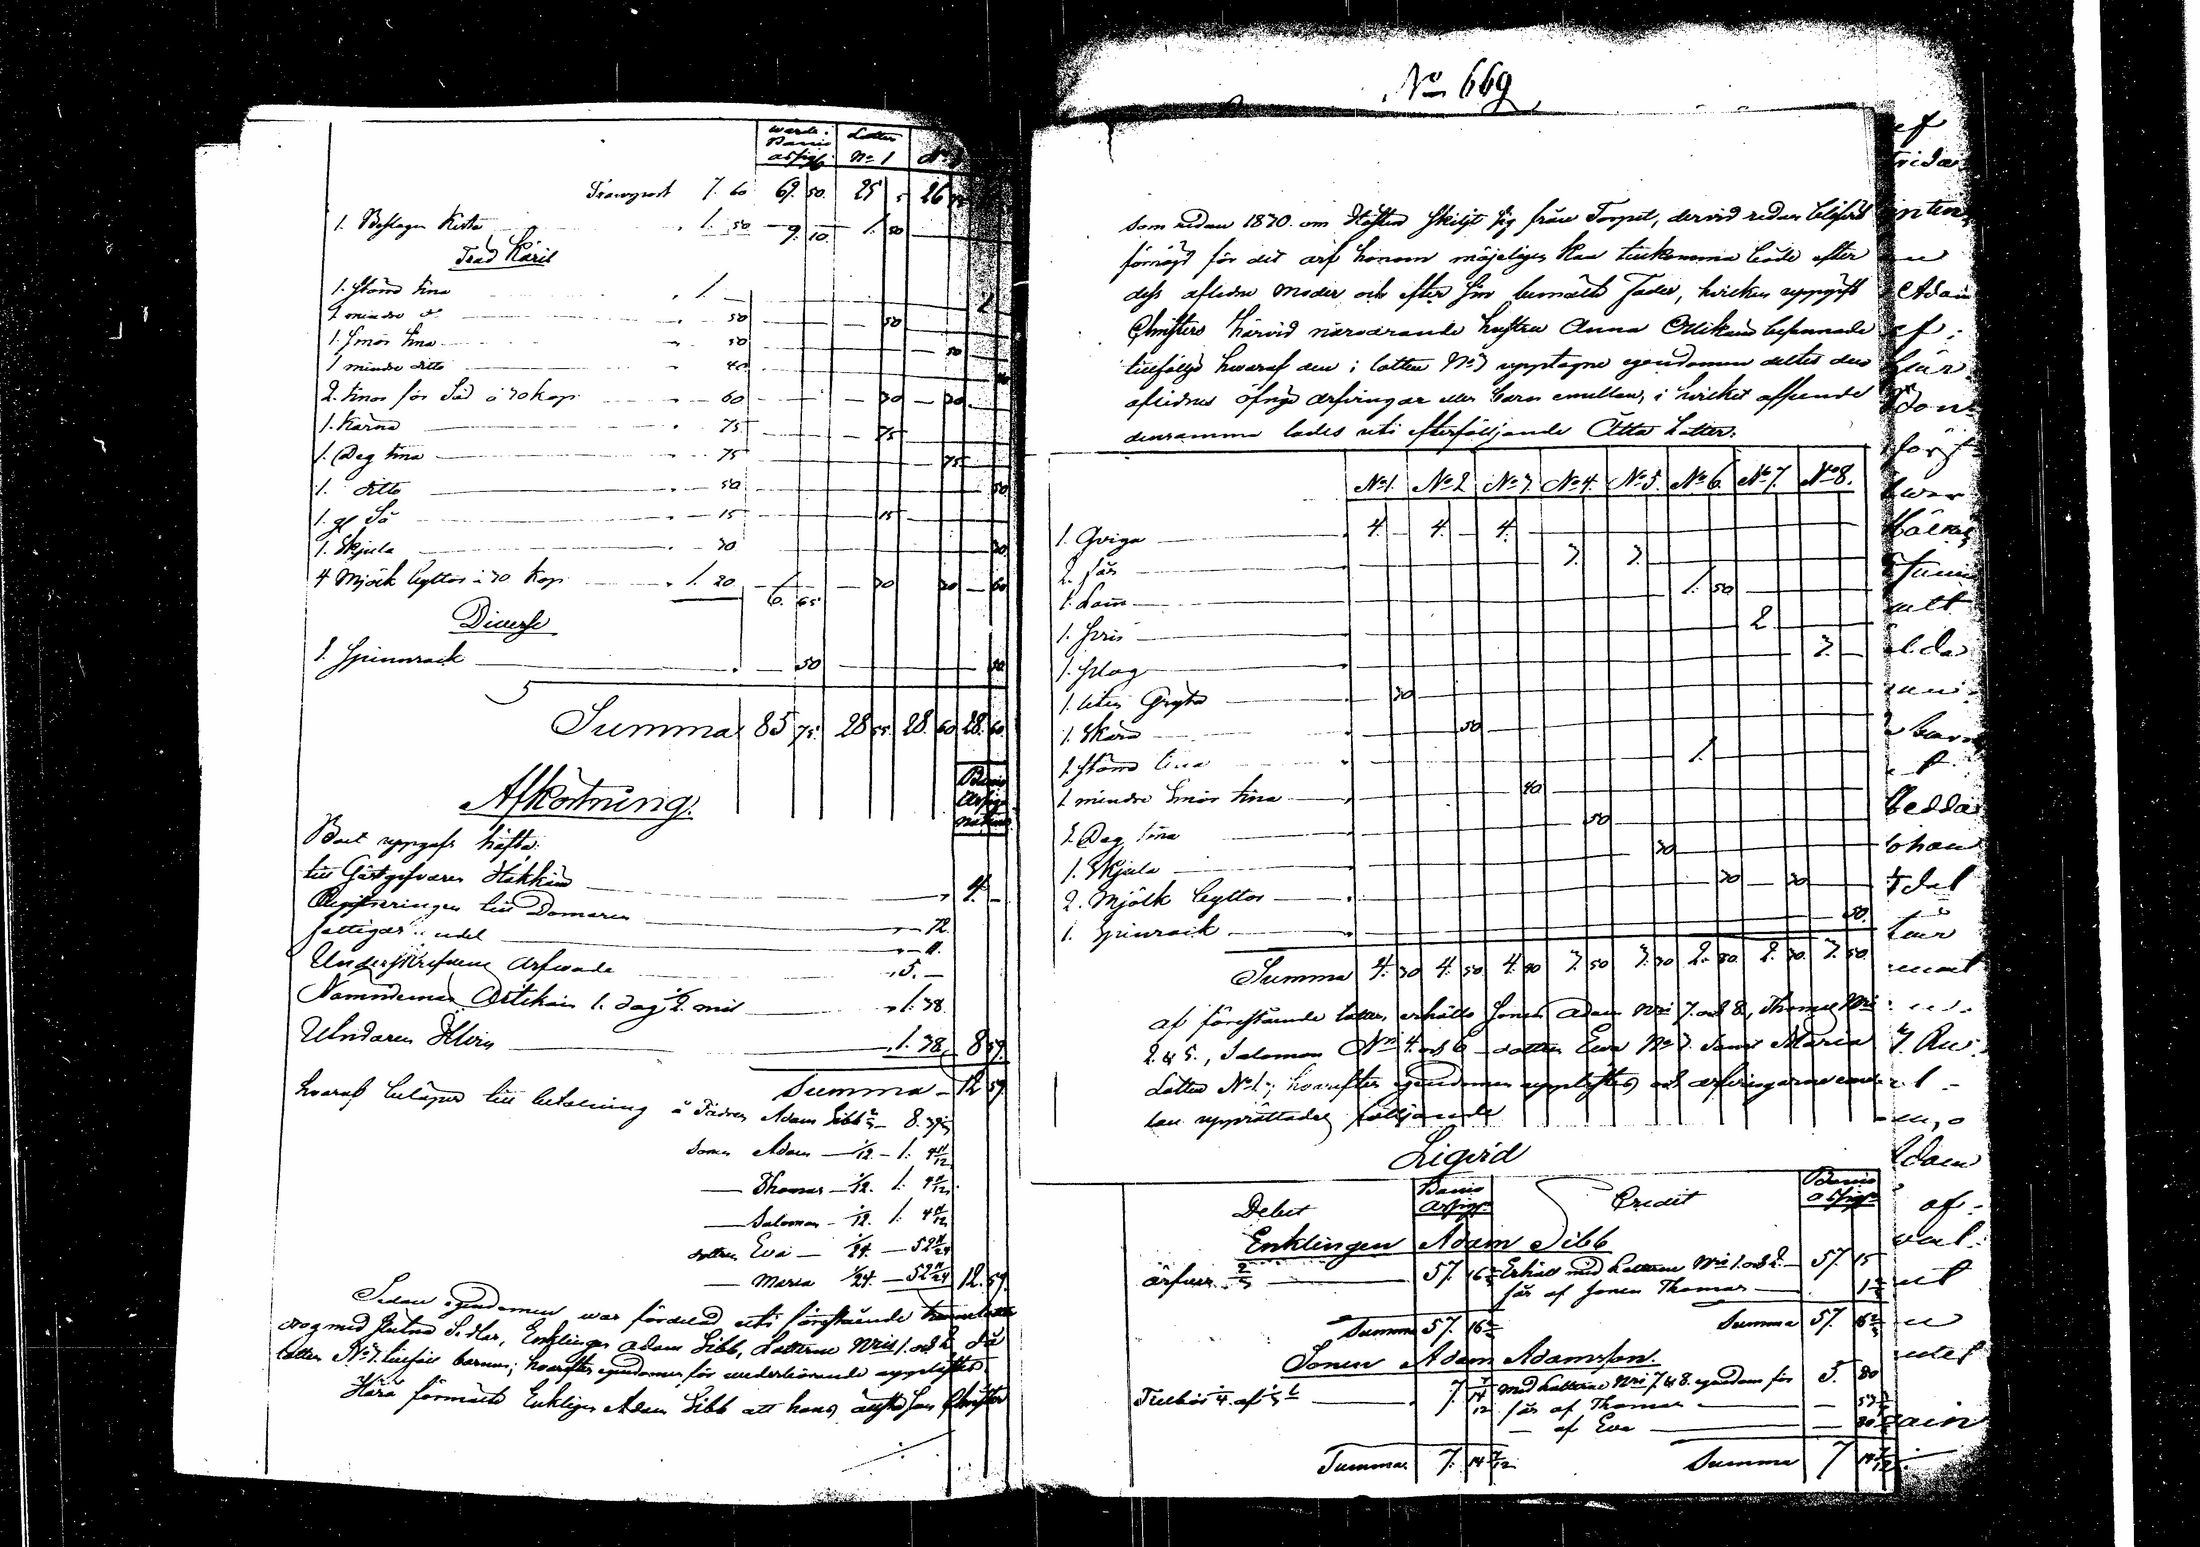 No 669
wärde. Banco assign. Lotten No 1 No
Transport 7. 60 69. 50. 25 5 26
1. Beslagen Kista 1. 50 9. 10. 1. 50
Träd Käril
1. större tina 1. —
1 mindre do 50 50
1. Smör tina 50 50
1 mindre ditto 40
2. tinor för Säd à 30 kop 60 30 30
1. Kärna 75 75
1. Deg tina 75 75
1. ditto 50 50
1. gl Så 15 15
1. Skjula 30 30
4 Mjölk byttor à 30 kop 1. 20 6. 65 30 30 60
Diverse
1. Spinnrock 50 50
Summa 85 75. 28 55 28. 60 28. 60
Afkortning.
Banco Assignationer
Bort uppgafs häfta:
till Gästgifvaren Häkkäin 4. —
Registreringen till Domaren 72.
fattigas andel 11.
Underskrifvne Arfwode 5. —
Nämndeman Ottikain 1. dag 2. mil 1. 38.
Utridaren Hlirn 1. 38. 8 59.
Summa 12 59.
hvaraf belöper till betalning å Fadren Adam Sibb 2/3 — 8. 39 1/3
Sonen Adam — 1/12 — 1. 4 11/12
— Thomas — 1/12. 1. 4 11/12
— Salomon — 1/12. 1. 4 11/12
dottren Eva — 1/24. — 52 11/24
— Maria 1/24. — 52 11/24 12. 59.
Sedan egendomen war fördelad uti förestående trenne lotter
drog med slutna Sedlar, Enklingen Adam Sibb, Lotterne Nris 1. och 2. då
lotten No 3. tillföll barnen; hvarefter egendomen för vederbörande uppläftes.
Härå förmälte Enklingen Adam Sibb att hans äldsta son Christer
som redan 1830. om Hösten skiljt sig från Torpet, dervid redan blifvit
förnögd för det arf honom möjeligen kan tillkomma både efter
dess aflidne moder och efter sin bemälte Fader, hvilken uppgift
Christers härvid närvarande hustru Anna Ottikain besannade
tillföljd hwaraf den i lotten No 3 upptagne egendomen deltes den
aflidnes öfrige arfvingar eller barn emellan, i hvilket afseende
densamma lades uti efterföljande Åtta Lotter:
No 1. No 2 No 3. No 4. No 5. No 6. No 7. No 8.
1. Qviga 4. — 4. — 4. —
2. får 3. 3.
1. Lam 1. 50
1. gris 2.
1. plog 3. —
1. liten Gryta 30
1. Skära 50
1. större tina 1.
1 mindre smör tina 40
1. Deg tina 50
1. Skjula 30
2. Mjölk byttor 30 30
1. Spinrock 50.
Summa 4. 30 4. 50 4. 40 3. 50 3. 30 2. 80 2. 30. 3. 50
af förestående lotter, erhöllo Sonen Adam Nri 7. och 8., Thomas Nri
2. & 5., Salomon Nri 4. och 6 — dottren Eva No 3. samt Maria
Lotten No 1.; hvarefter egendomen uppläftes och arfvingarne emel-
lan upprättades följande
Liqvid
Debet Banco Assign. Credit Banco Assign.
Enklingen Adam Sibb
ärfver 2/3 57. 16 2/3 Erhåll med Lotterne Nri 1. och 2. — 57. 15
får af Sonen Thomas 1 2/3
Summa 57. 16 2/3 Summa 57. 16 2/3
Sonen Adam Adamsson.
Tillkom 1/4 af 1/3 7. 14 7/12 med Lotterne Nri 7. & 8. egendom för 5. 80
får af Thomas
— af Eva
Summa 7. 14 7/12 Summa 7 14 7/12